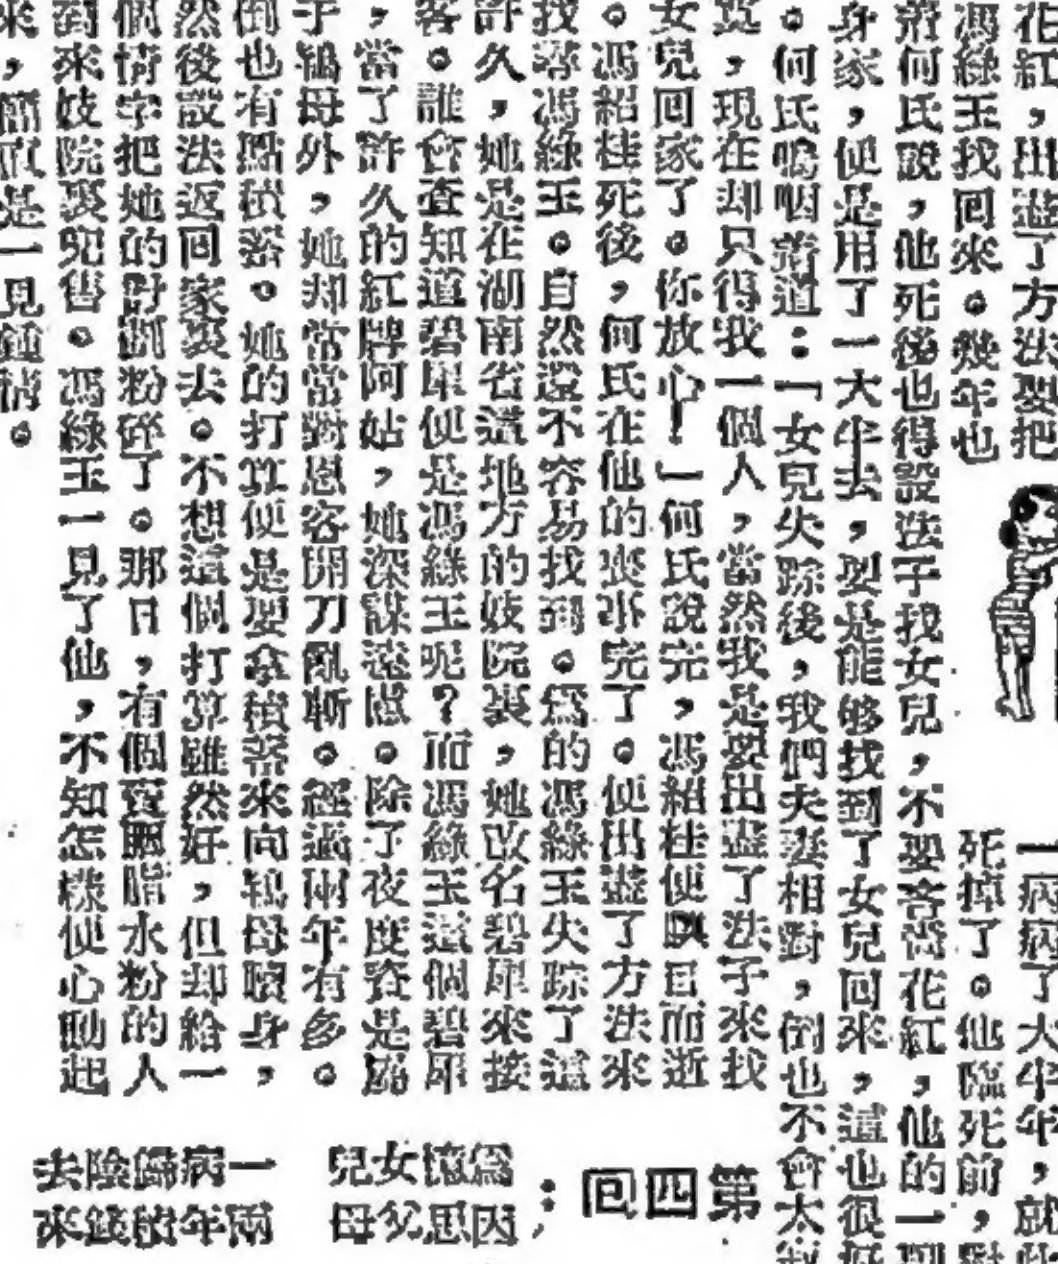 花紅，出盡了方法要把
馮綠玉找回來。幾年也
蕭何氏說，他死後也得設法子找女兒，不要吝嗇花紅，他的一
身家，便是用了一大半去，要是能够找到了女兒回來，這也很
。何氏嗚咽著道：「女兒失踪後，我們夫妻相對，倒也不會太
，現在却只得我一個人，當然我是要出盡了法子來找
女兒回家了。你放心！」何氏說完，馮紹桂便瞑目而逝
。馮紹桂死後，何氏在他的喪事完了。便出盡了方法來
找尋馮綠玉。自然還不容易找到。爲的馮綠玉失踪了這
許久，她是在湖南省這地方的妓院裏，她改名碧犀來接
客。誰會查知道碧犀便是馮綠玉呢？而馮綠玉這個碧犀
，當了許久的紅牌阿姑，她深謀遠慮。除了夜度資是屬
于鴇母外，她却常常對恩客開刀亂斬。經過兩年有多。
倒也有點積蓄。她的打算便是要拿積蓄來向鴇母贖身，
然後設法返回家裏去。不想這個打算雖然好，但却給一
個情字把她的對劃粉碎了。那日，有個賣胭脂水粉的人
到來妓院裏兜售。馮綠玉一見了他，不知怎樣便心動起
來，簡直是一見鍾情。
一病病了大半年，就
死掉了。他臨死前，對
第四回：
爲憶女兒
因思父母
一病歸陰去
兩年